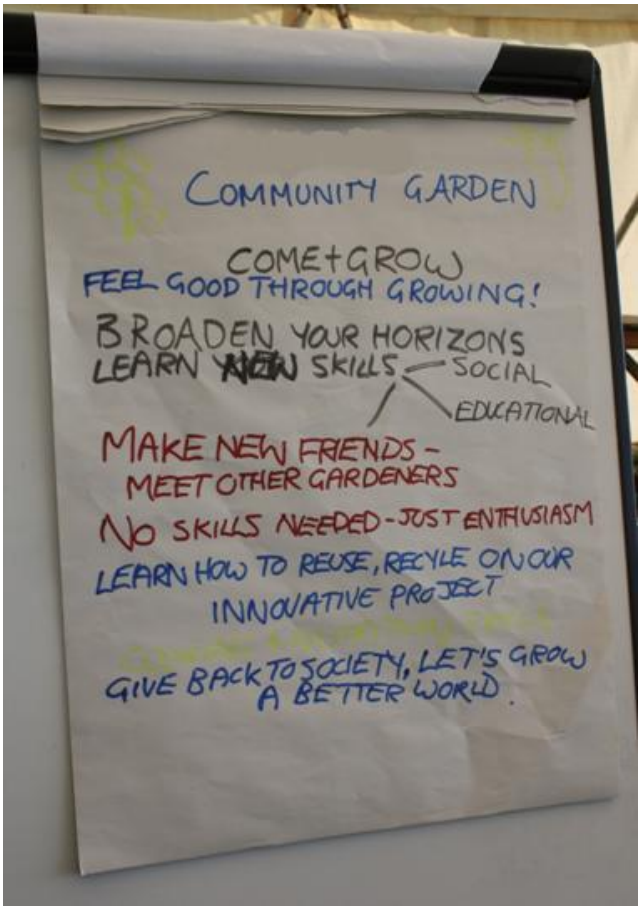 COMMUNITY GARDEN
COME+GROW
FEEL GOOD THROUGH GROWING!
BROADEN YOUR HORIZONS
LEARN NEW SKILLS - SOCIAL
EDUCATIONAL
MAKE NEW FRIENDS -
MEET OTHER GARDENERS
NO SKILLS NEEDED - JUST ENTHUSIASM
LEARN HOW TO REUSE, RECYLE ON OUR
INNOVATIVE PROJECT
GIVE BACK TO SOCIETY, LET'S GROW
A BETTER WORLD.